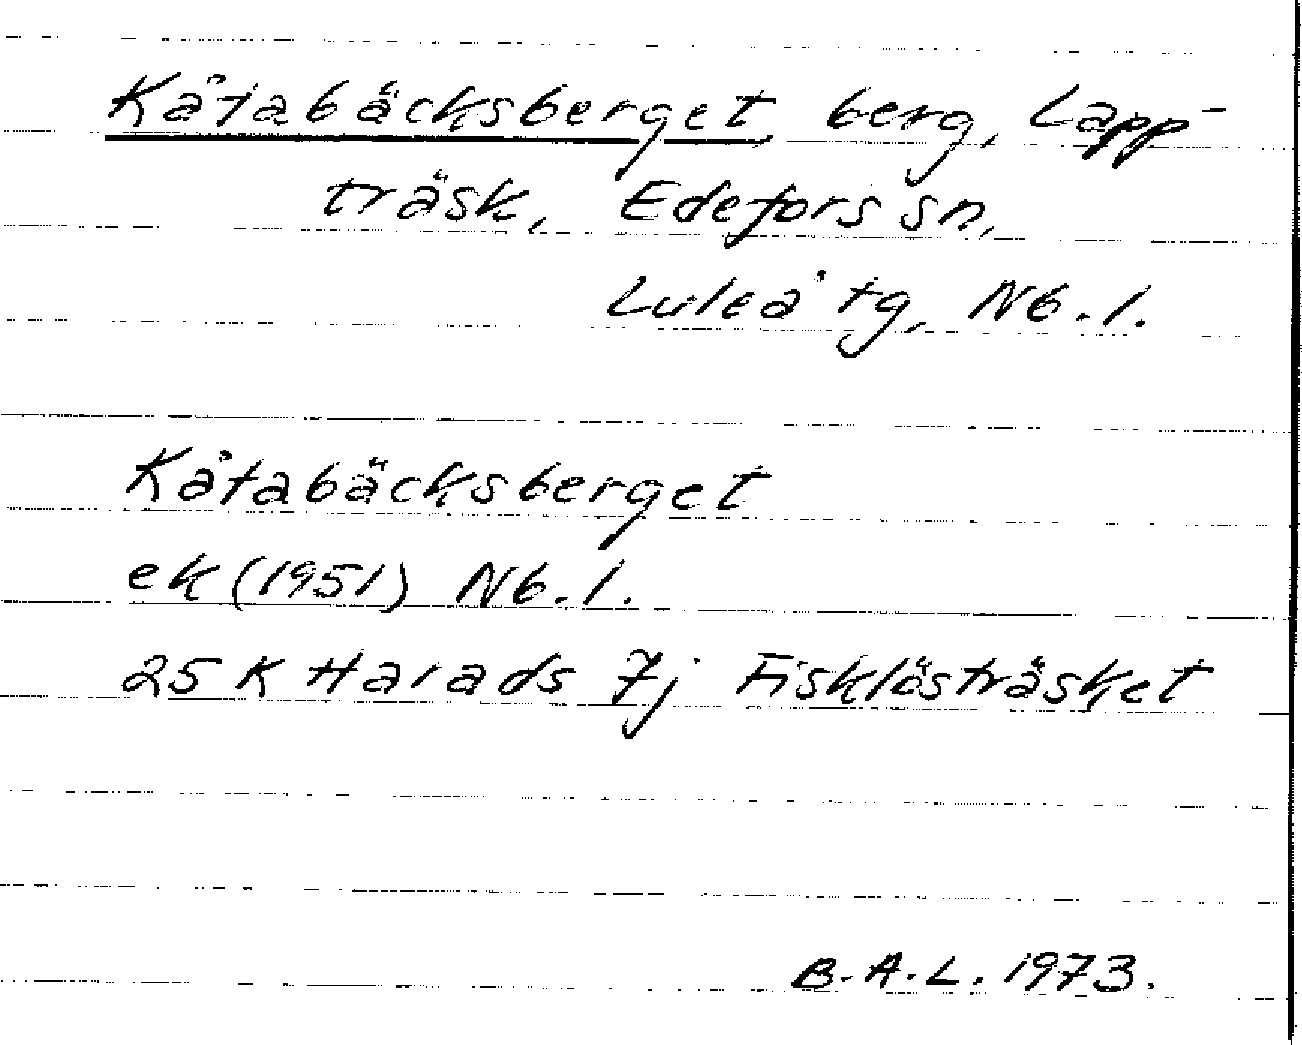 Kåtabäcksberget berg, Lapp-
träsk, Edefors sn,
Luleå tg, Nb.l.
Kåtabäcksberget
ek (1951) Nb.l.
25 K Harads 7j Fisklösträsket
B.A.L. 1973.